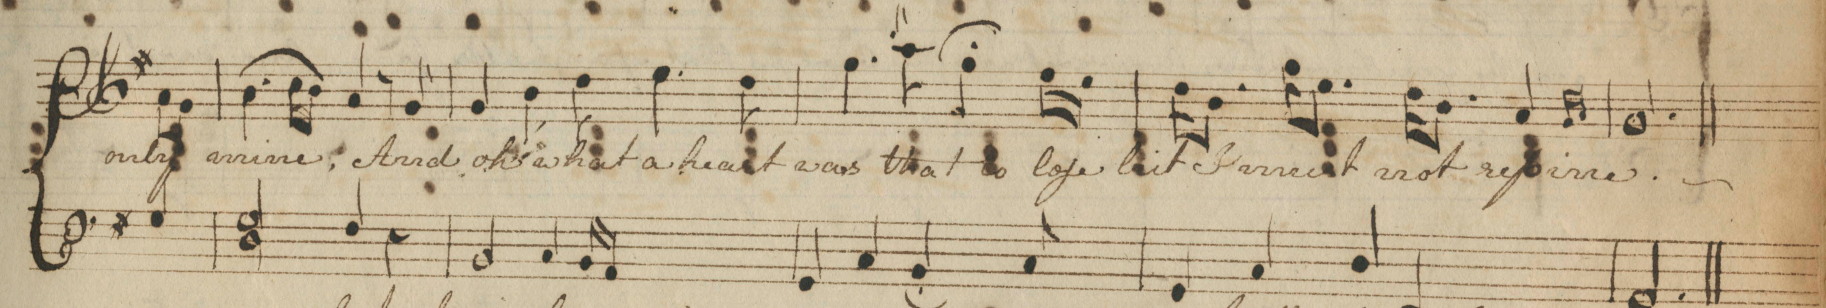 only mine, And oh! what a heart was that to lose but I must not repine.